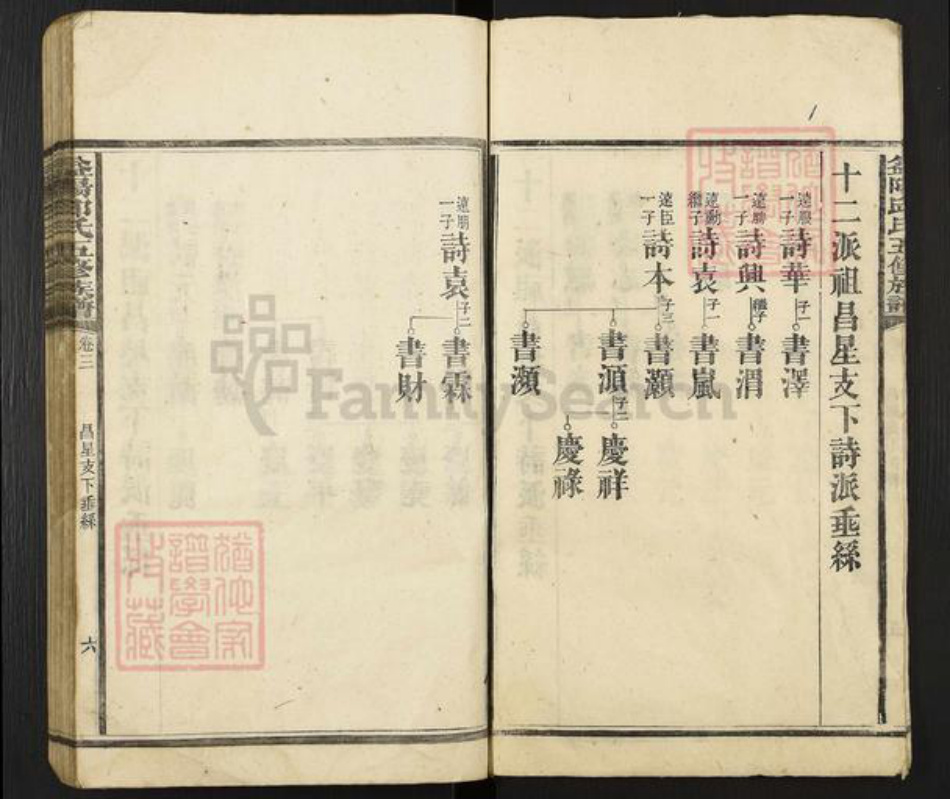 十二派祖昌星支下詩派垂絲
一子
詩華
子一
書澤
一子
詩興
繼子
書渭
繼子
詩哀
子一
書嵐
遠臣
一子
詩本
子三
書灝
書湏
子二
慶祥
慶祿
書瀕
遠朋
一子
詩哀
子二
書霖
書財
邱氏五修族譜
卷三
昌星支下垂絲
六
猶他家譜學會收藏
FamilySearch